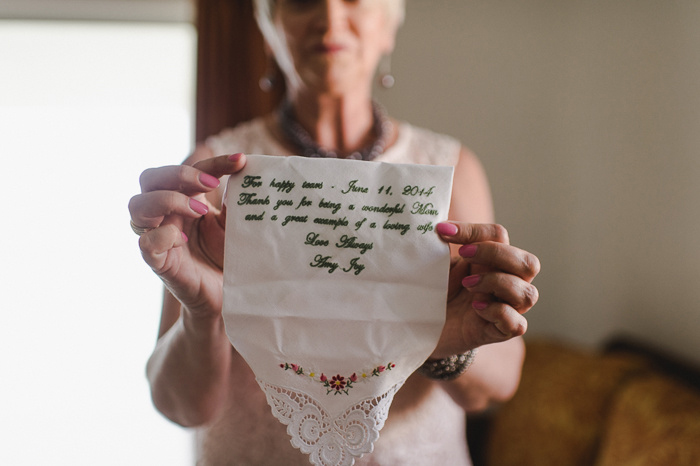 For happy tears - June 11, 2014
Thank you for being a wonderful Mom
and a great example of a loving wife
Love Always
Amy Joy